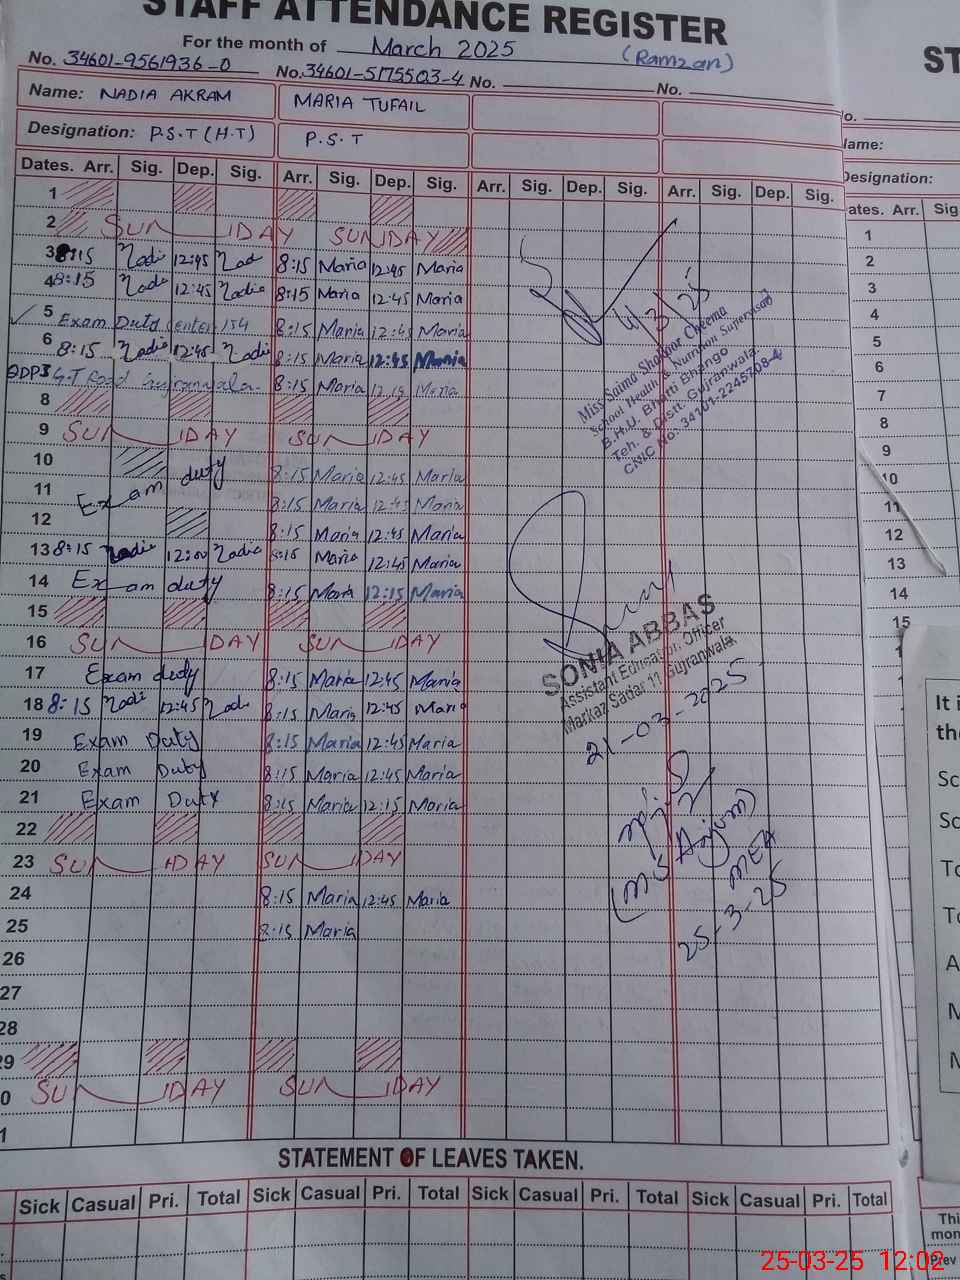 STAFF ATTENDANCE REGISTER
For the month of March 2025 (Ramzan)
No. 34601-9561936-0 No. 34601-5175503-4 No. No.
Name: NADIA AKRAM MARIA TUFAIL
Designation: P.S.T (H.T) P.S.T
Dates. Arr. Sig. Dep. Sig. Arr. Sig. Dep. Sig. Arr. Sig. Dep. Sig. Arr. Sig. Dep. Sig.
1
2 SUN DAY SUNDAY
3 8:15 Nadia 12:45 Nadia 8:15 Maria 12:45 Maria
4 8:15 Nadia 12:45 Nadia 8:15 Maria 12:45 Maria
4/3/25
5 Exam Duty center 154 8:15 Maria 12:45 Maria
6 8:15 Nadia 12:45 Nadia 8:15 Maria 12:45 Maria
G.T Road 8:15 Maria Maria
8
9 SUN DAY SUN DAY
Miss Saima Shakoor Cheema
School Health & Nutrition Supervisor
B.H.U. Bhatti Bhango
Teh. & Distt. Gujranwala
CNIC No: 34101-2245708-4
10 Exam duty 8:15 Maria 12:45 Maria
11 8:15 Maria 12:45 Maria
12 8:15 Maria 12:45 Maria
13 8:15 Nadia 12:00 Nadia 8:15 Maria 12:45 Maria
14 Exam duty 8:15 Maria 12:15 Maria
15
16 SUN DAY SUN DAY
SONIA ABBAS
Assistant Education Officer
Markaz Sadar 11, Gujranwala.
21-03-2025
17 Exam duty 8:15 Maria 12:45 Maria
18 8:15 Nadi 12:45 Nadi 8:15 Maria 12:45 Maria
19 Exam Duty 8:15 Maria 12:45 Maria
20 Exam Duty 8:15 Maria 12:45 Maria
21 Exam Duty 8:15 Maria 12:15 Maria
22
23 SUN DAY SUN DAY
(MS Anjum)
MEA
25-3-25
24 8:15 Maria 12:45 Maria
25 8:15 Maria
26
27
28
29
0 SUN DAY SUN DAY
1
STATEMENT OF LEAVES TAKEN.
Sick Casual Pri. Total Sick Casual Pri. Total Sick Casual Pri. Total Sick Casual Pri. Total
ST
o.
lame:
Designation:
ates. Arr. Sig
1
2
3
4
5
6
7
8
9
10
11
12
13
14
15
It i
the
Sc
Sc
To
To
A
M
N
This
mon
Prev
25-03-25 12:02